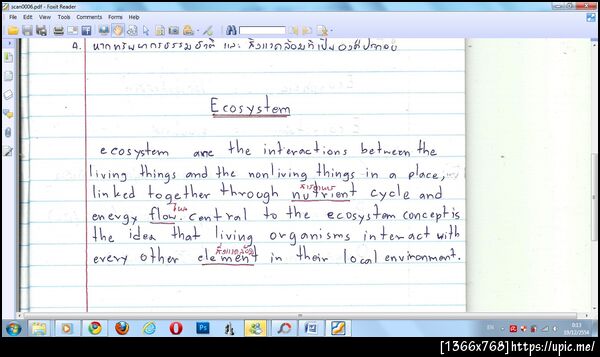 scan0006.pdf - Foxit Reader
File Edit View Tools Comments Forms Help
Ecosystem
ecosystem are the interactions between the
living things and the nonliving things in a place,
linked together through nutrient cycle and
energy flow. central to the ecosystem concept is
the idea that living organisms interact with
every other element in their local environment.
EN
0:13
19/12/2554
[1366x768]https://upic.me/